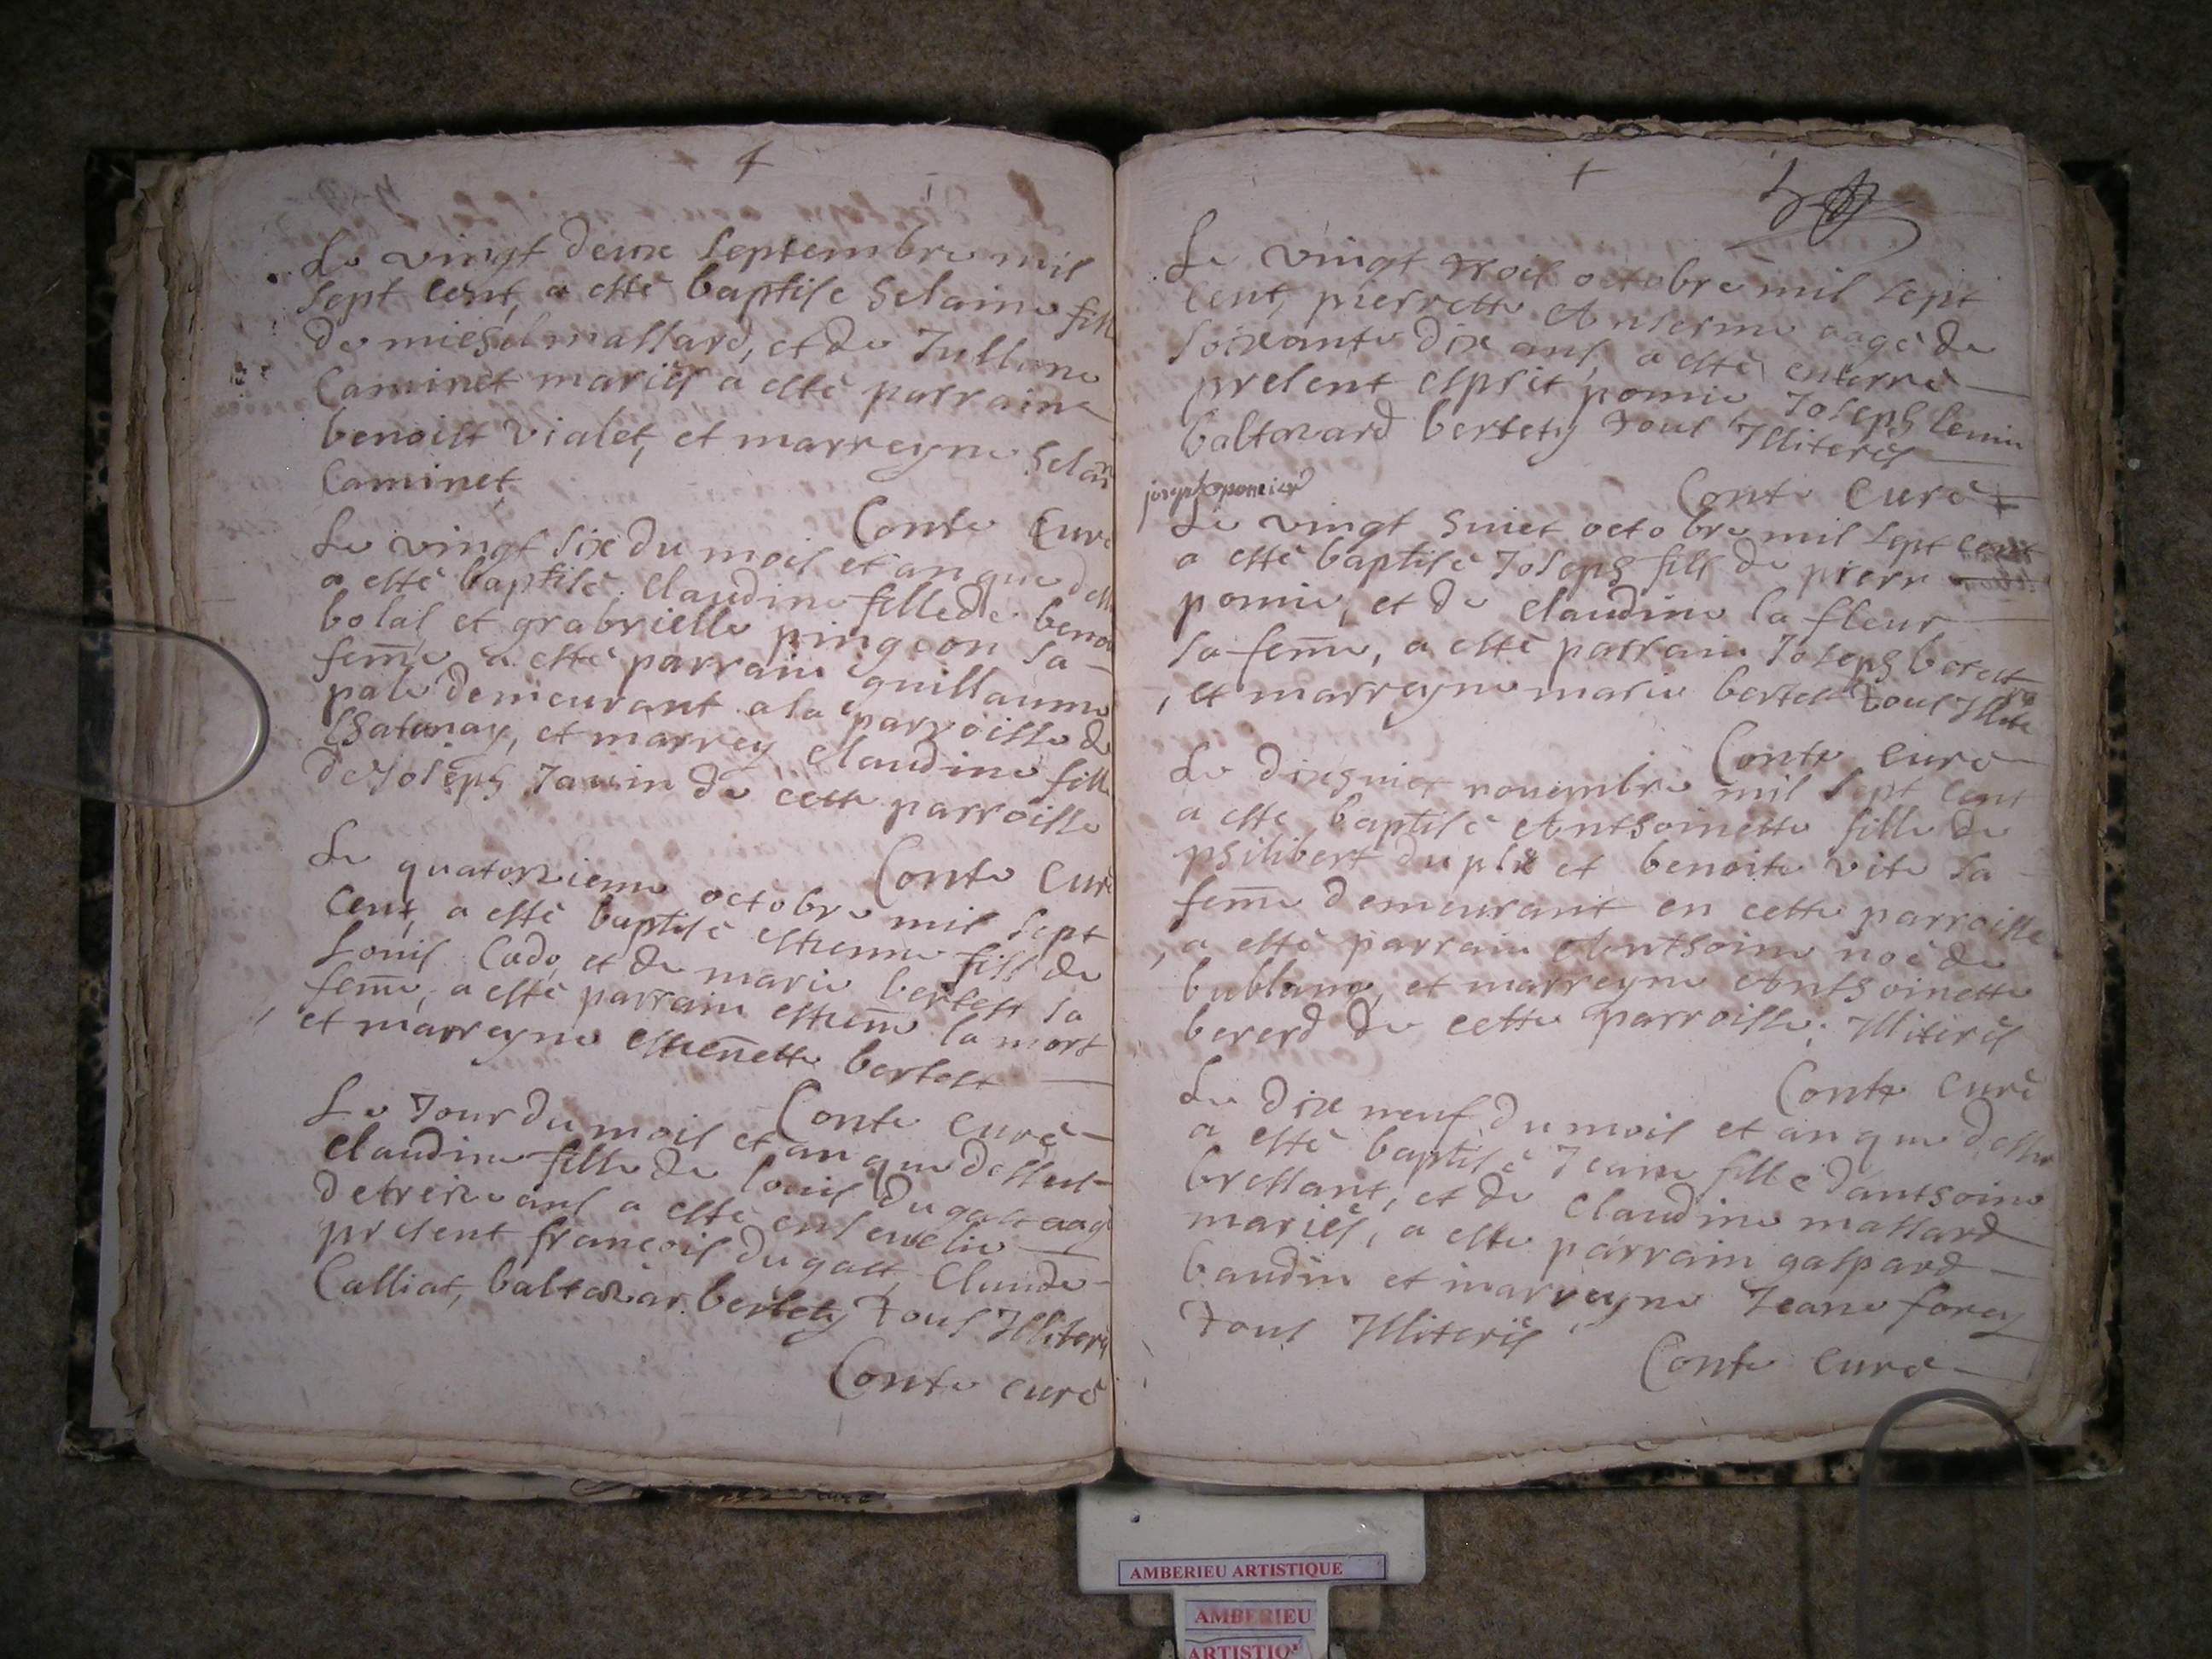 Le vingt deux septembre mil
sept cent, a esté baptise helaine fill
de michel massard, et de Jullene
Caminet mariés a esté parrain
benoist vialet, et marreyne helan
Caminet
Conte Curé
Le vingt six du mois et an que dess
a esté baptisé Claudine fille de benoi
bolas et grabrielle pingeon sa
fem̄e a esté parrain guillaume
pale demeurant a la parroisse de
Chatenay, et marrey Claudine fille
de Joseph Janin de cette parroisse
Conte Curé
Le quatorzieme octobre mil sept
cent, a esté baptisé estienne fils de
Louis Cado, et de marie bertest sa
fem̄e, a esté parrain estien̄e la mort
et marreyne estien̄ette bertest
Conte Curé
Le Jour du mois et an que dessus
Claudine fille de louis dugast aagé
de treize ans a esté ensevelie
présent françois dugast, Claude
Calliat, baltazar bertety tous Illiteré
Conte curé
+
Le vingt trois octobre mil sept
cent, pierrette Anserme aagé de
soixante dix ans, a esté enterré
present esprit pomie, Joseph Lenin
baltazard bertety tous Illiterés
Conte Curé
joseph pomier
Le vingt huiet octobre mil sept cent
a esté baptisé Joseph fils de pierre
pomie, et de Claudine la fleur
sa fem̄e, a esté parrain Joseph berest
, et marreyne marie bertest tous Illite
Conte Curé
Le dixhuiet nouembre mil sept cent
a esté baptisé Anthoinette fille de
philibert duplx et benoite vite sa
fem̄e demeurant en cette parroisse
, a esté parrain Anthoine noé de
bublane, et marreyne Anthoinette
bererd de cette parroisse. Illiterés
Conte Curé
Le dix neuf du mois et an que dessu
a esté baptisé Jeane fille danthoine
bressant, et de Claudine massard
mariés, a esté parrain gaspard
baudin et marreyne Jeane forey
tous Illiterés
Conte Curé
AMBERIEU ARTISTIQUE
AMBERIEU
ARTISTIQU